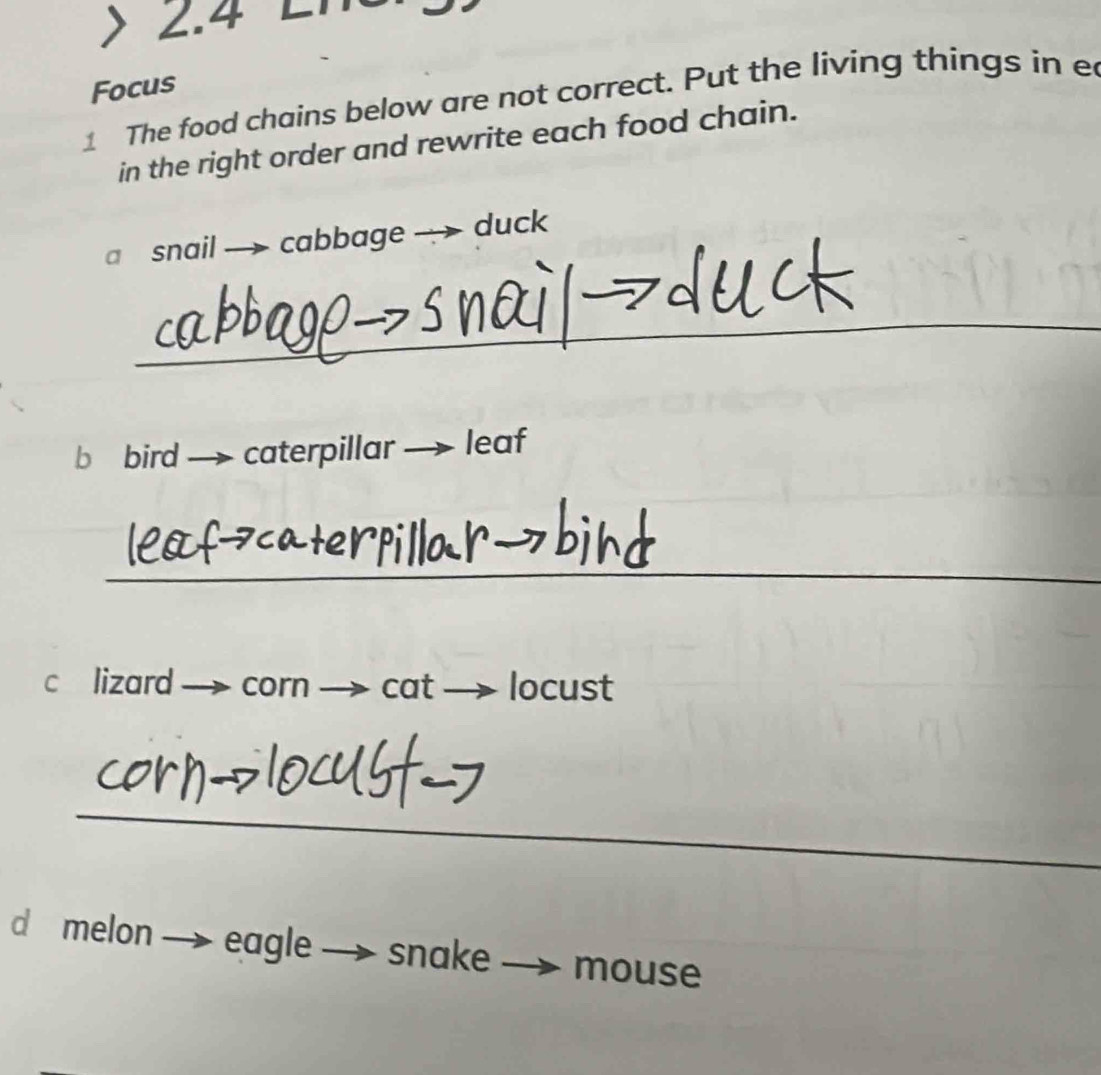 > 2.4
Focus
1 The food chains below are not correct. Put the living things in
in the right order and rewrite each food chain.
a snail → cabbage → duck
cabbage → snail → duck
b bird → caterpillar → leaf
leaf → caterpillar → bind
c lizard → corn → cat → locust
corn → locust →
d melon → eagle → snake → mouse